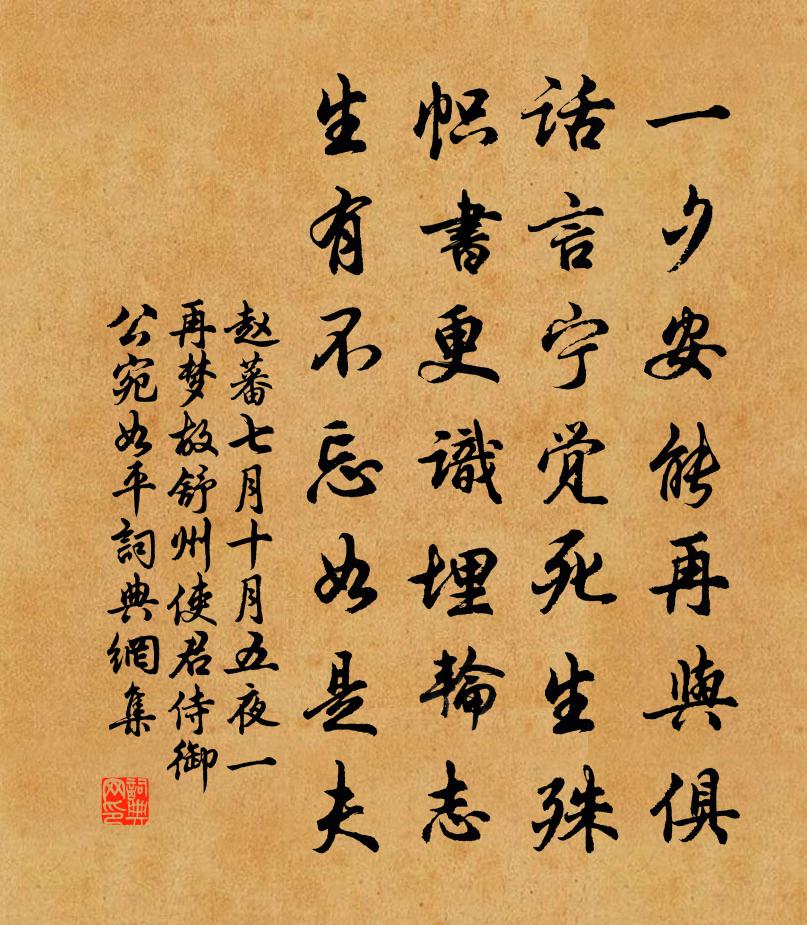 一夕安能再與俱
话言宁觉死生殊
帜書更識埋輪志
生有不忘如是夫
赵蕃七月十月五夜一
再梦故舒州使君侍御
公宛如平詞典網集
詞典
网印